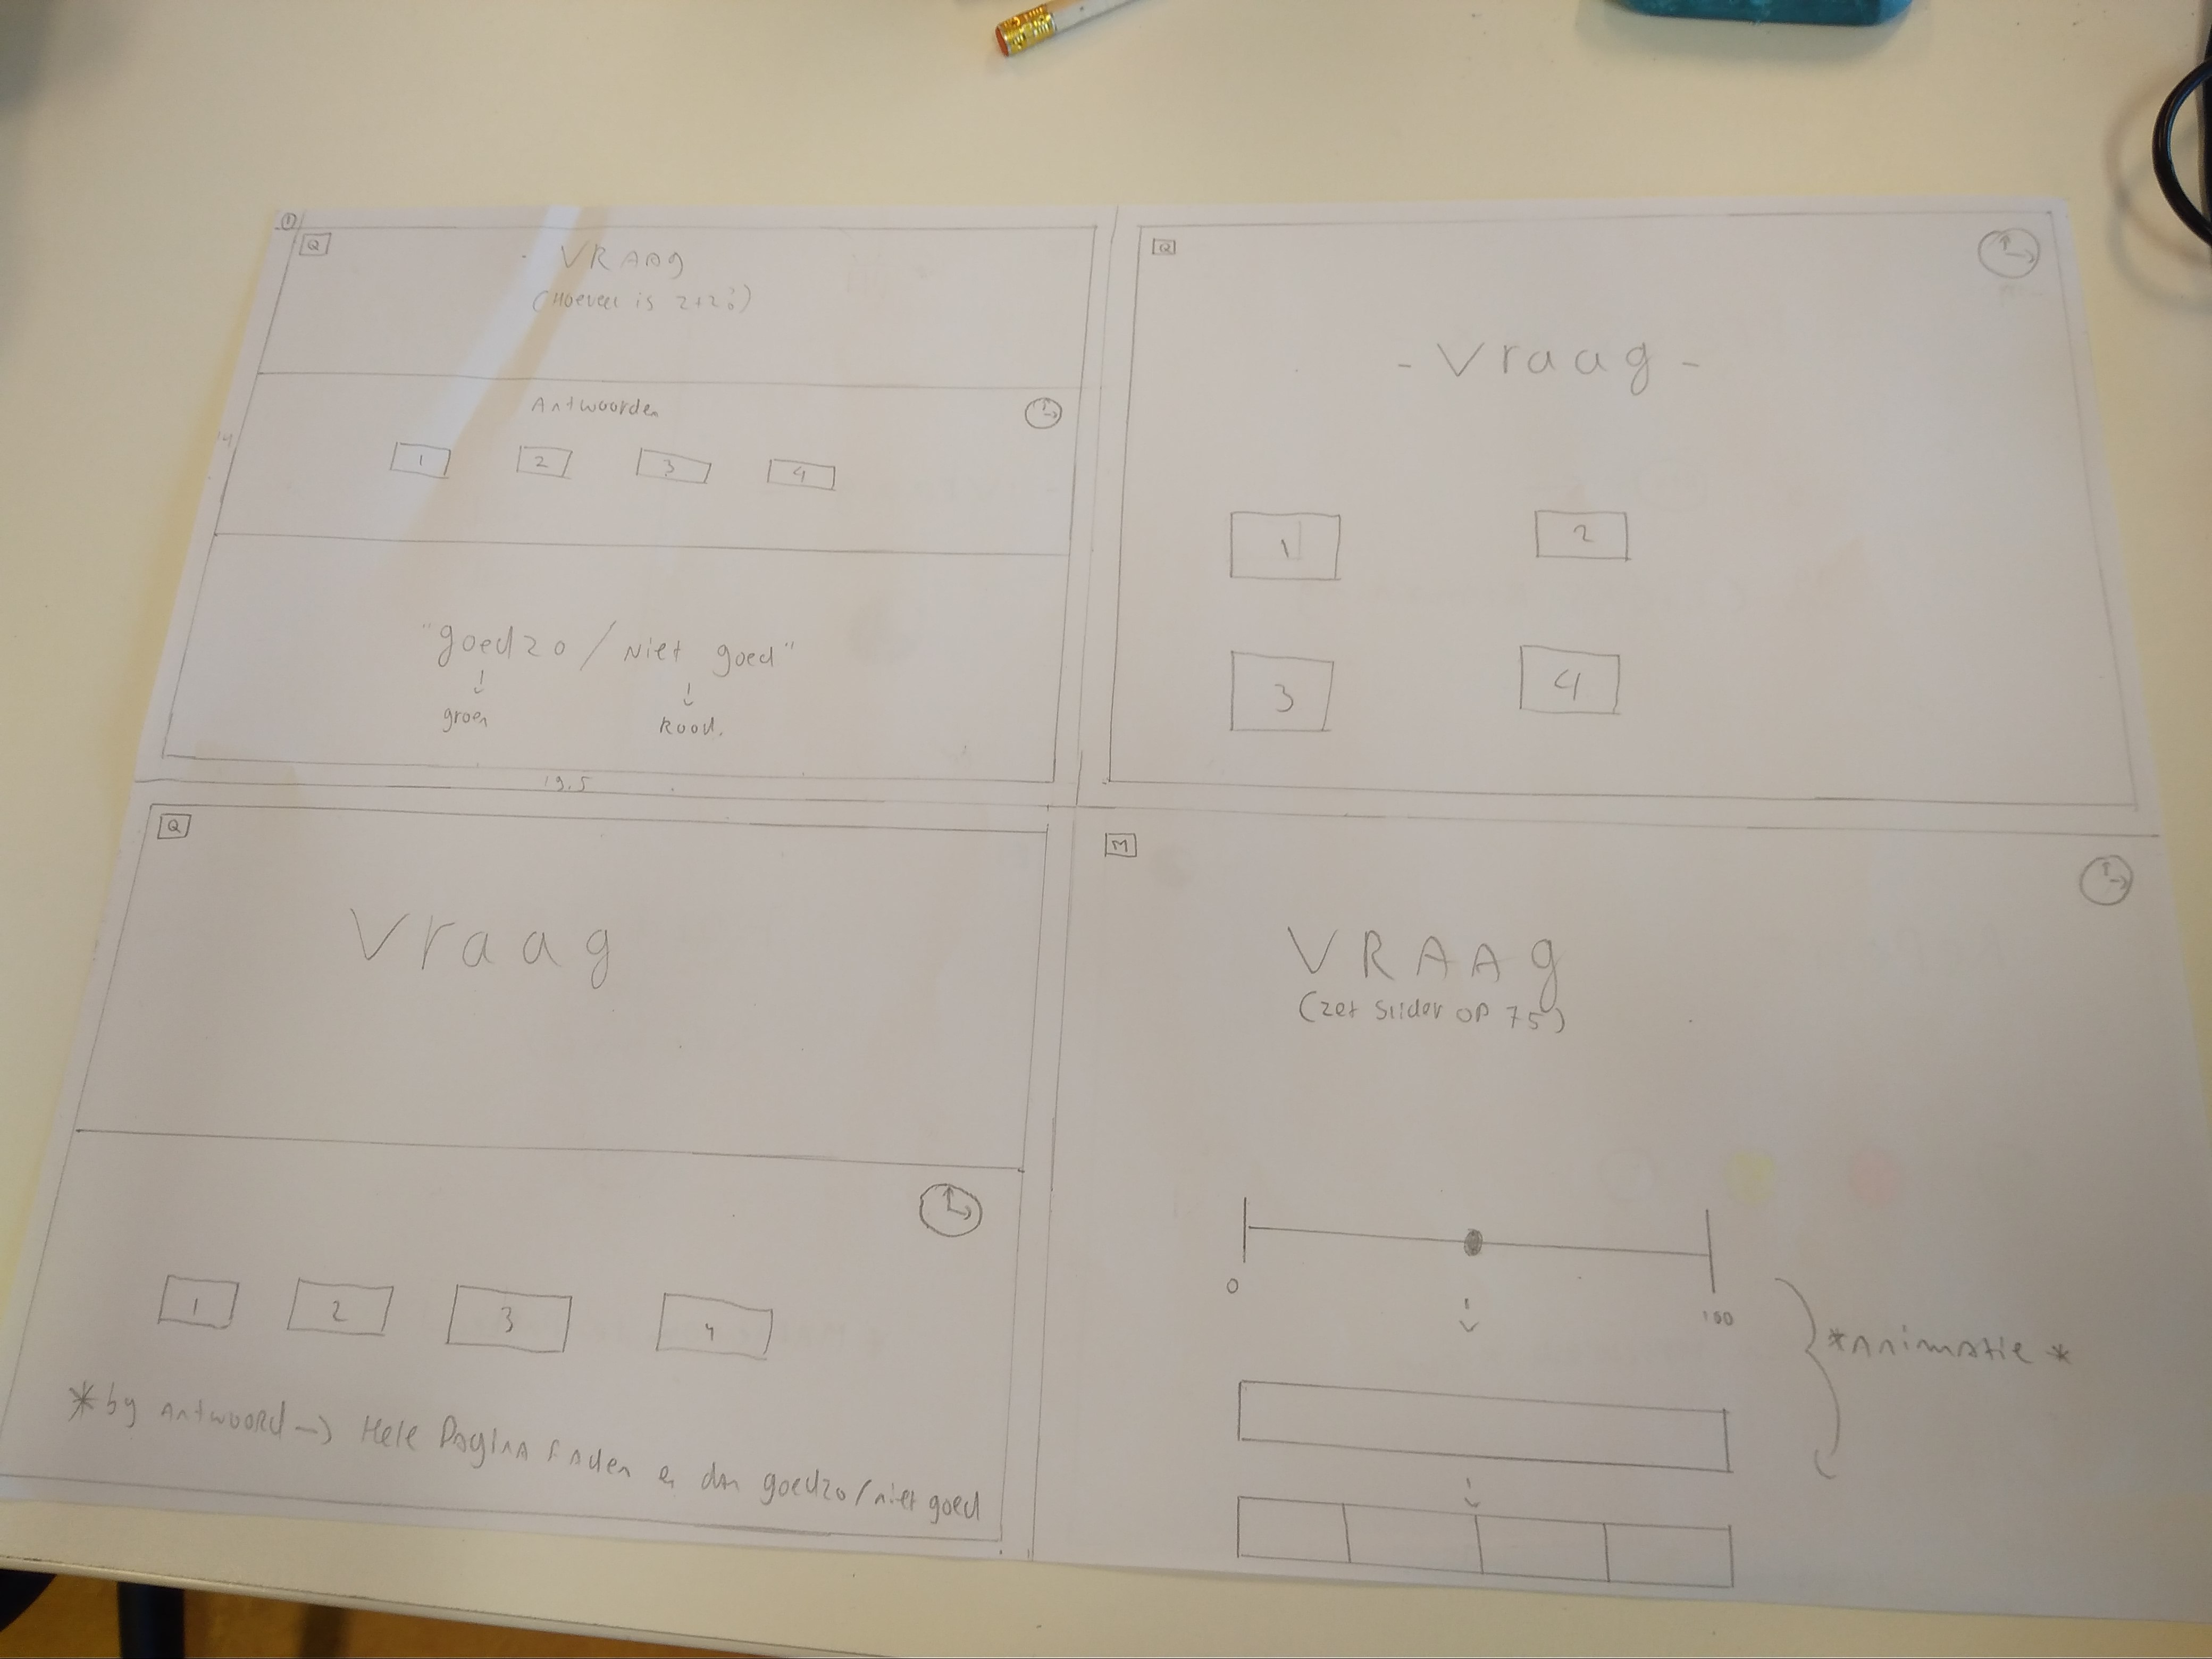 1
Q
VRAAg
(Hoeveel is 2+2?)
Antwoorden
1 2 3 4
14
"goedzo / Niet goed"
groen Rood.
19.5
Q
- Vraag -
1 2
3 4
Q
Vraag
1 2 3 4
* by Antwoord -> Hele Pagina Faden en dan goedzo/niet goed
M
VRAAg
(zet Slider op 75)
0 100
*Animatie*